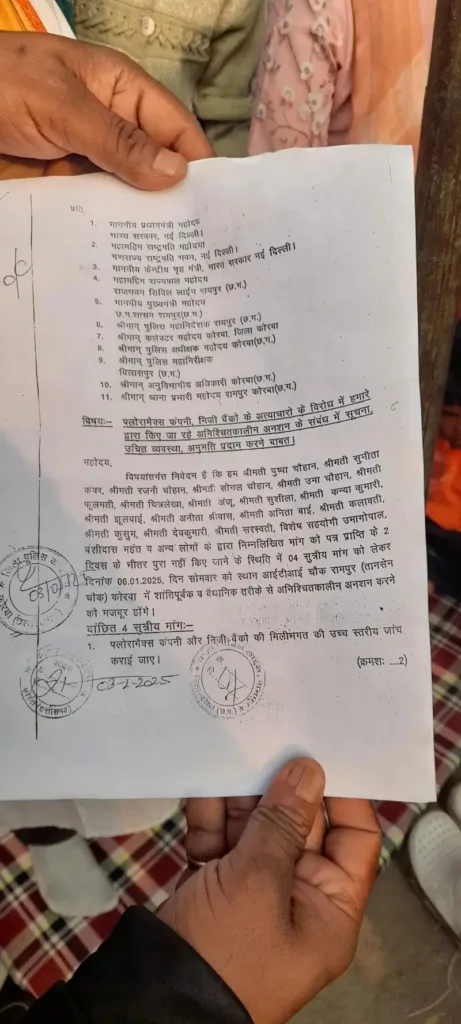 प्रति,
1. माननीय प्रधानमंत्री महोदय
भारत सरकार, नई दिल्ली।
2. महामहिम राष्ट्रपति महोदया
गणराज्य राष्ट्रपति भवन, नई दिल्ली।
3. माननीय केन्द्रीय गृह मंत्री, भारत सरकार नई दिल्ली।
4. महामहिम राज्यपाल महोदय
राजभवन सिविल लाईन रायपुर (छ.ग.)
5. माननीय मुख्यमंत्री महोदय
छ.ग.शासन रायपुर(छ.ग.)
6. श्रीमान् पुलिस महानिदेशक रायपुर (छ.ग.)
7. श्रीमान् कलेक्टर महोदय कोरबा, जिला कोरबा
8. श्रीमान् पुलिस अधीक्षक महोदय कोरबा(छ.ग.)
9. श्रीमान् पुलिस महानिरीक्षक
बिलासपुर (छ.ग.)
10. श्रीमान् अनुविभागीय अधिकारी कोरबा(छ.ग.)
11. श्रीमान् थाना प्रभारी महोदय रामपुर कोरबा(छ.ग.)
विषयः– फ्लोरामेक्स कंपनी, निजी बैंको के अत्याचारो के विरोध में हमारे
द्वारा किए जा रहे अनिश्चितकालीन अनशन के संबंध में सूचना,
उचित व्यवस्था, अनुमति प्रदान करने बाबत्।
महोदय,
विषयांतर्गत निवेदन है कि हम श्रीमती पुष्पा चौहान, श्रीमती सुनीता
कंवर, श्रीमती रजनी चौहान, श्रीमती सोनल चौहान, श्रीमती उमा चौहान, श्रीमती
फूलगती, श्रीमती चित्रलेखा, श्रीमती अंजू, श्रीमती सुशीला, श्रीमती कन्या कुमारी,
श्रीमती झूलबाई, श्रीमती अनीता श्रीवास, श्रीमती अनिता बाई, श्रीमती कलावती,
श्रीमती कुसुम, श्रीमती देवकुमारी, श्रीमती सरस्वती, विशेष सहयोगी उमागोपाल,
बंशीदास महंत व अन्य लोगों के द्वारा निम्नलिखित मांग को पत्र प्राप्ति के 2
दिवस के भीतर पुरा नहीं किए जाने के स्थिति में 04 सुत्रीय मांग को लेकर
दिनांक 06.01.2025, दिन सोमवार को स्थान आईटीआई चौक रामपुर (तानसेन
चौक) कोरबा में शांतिपूर्वक व वैधानिक तरीके से अनिश्चितकालीन अनशन करने
को मजबूर होंगे।
वांछित 4 सुत्रीय मांगः–
1. फ्लोरामेक्स कंपनी और निजी बैंको की मिलीभगत की उच्च स्तरीय जांच
कराई जाए।
(क्रमशः ....2)